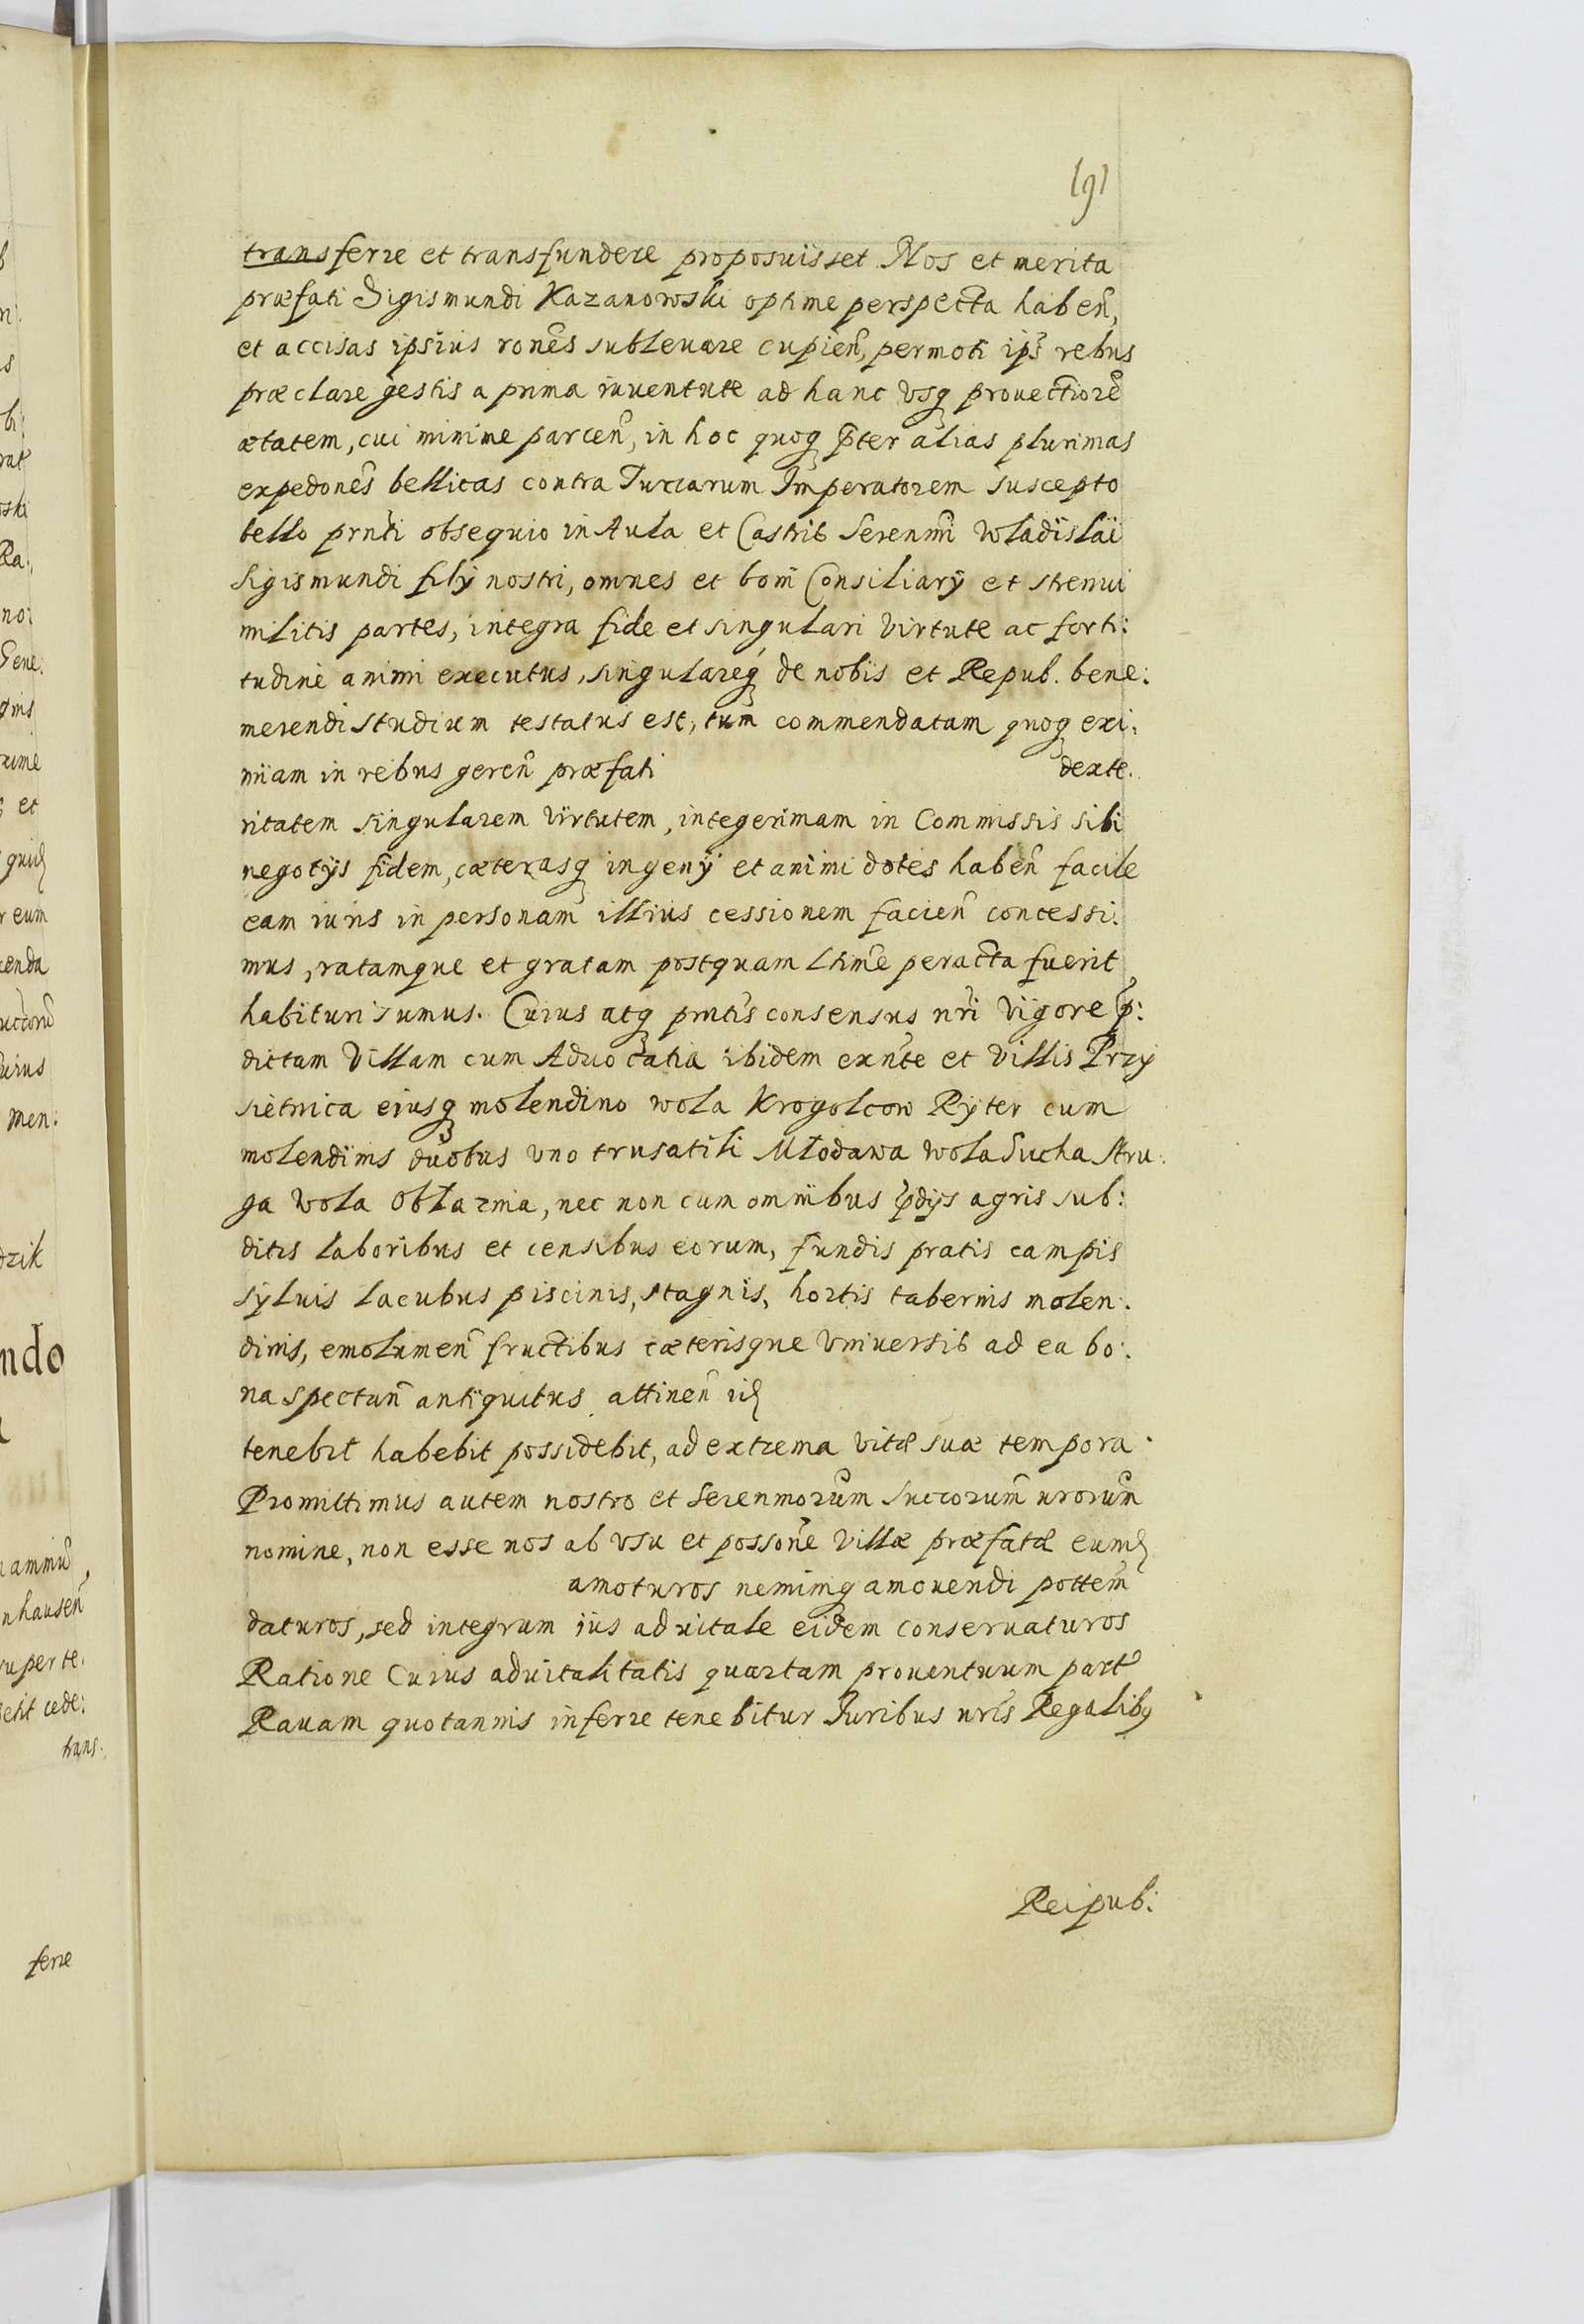 191
transferre et transfundere proposuisset Nos et merita
præfati Sigismundi Kazanowski optime perspecta habeñ,
et accisas ipsius rones̃ subleuare cupieñ, permoti ips̃ rebus
præclare gestis a prima iuuentute ad hanc vsq prouectiorẽ
ætatem, cui minime parceñ, in hoc quoq p̃ter alias plurimas
expedones̃ bellicas contra Turcarum Imperatorem suscepto
bello prnti obsequio in Aula et Castris Serenmi Wladislai
Sigismundi filÿ nostri, omnes et boni Consiliarÿ et strenui
militis partes, integra fide et singulari virtute ac forti:
tudine animi executus, singulareq de nobis et Repub. bene:
merendi studium testatus est, tum commendatam quoq exi:
miam in rebus gereñ præfati dexte.
ritatem singularem virtutem, integerimam in Commissis sibi
negotÿs fidem, cæterasq ingenÿ et animi dotes habeñ facile
eam iuris in personam illius cessionem facieñ concessi:
mus, ratamque et gratam postquam Ltime peracta fuerit
habituri sumus. Cuius atq prntis consensus nri vigore p̃:
dictam villam cum Aduocatia ibidem exnte et villis Przÿ
sietnica eiusq molendino wola Krogolcow Rÿter cum
molendinis duobus vno trusatili Młodawa wola Sucha Stru:
ga wola obłaznia, nec non cum omnibus p̃dijs agris sub:
ditis laboribus et censibus eorum, fundis pratis campis
sÿluis lacubus piscinis, stagnis, hortis tabernis molen:
dinis, emolumeñ fructibus cæterisque vniuersis ad ea bo:
na spectañ antiquitus attineñ
tenebit habebit possidebit, ad extrema vitæ suæ tempora.
Promittimus autem nostro et Serenmorum Succorum nrorum
nomine, non esse nos ab vsu et possone villæ præfatæ eumd
amoturos neminiq amouendi pottem
daturos, sed integrum ius aduitale eidem conseruaturos
Ratione Cuius aduitalitatis quartam prouentuum partẽ
Rauam quotannis inferre tenebitur Iuribus nris Regalibq
Reipub: